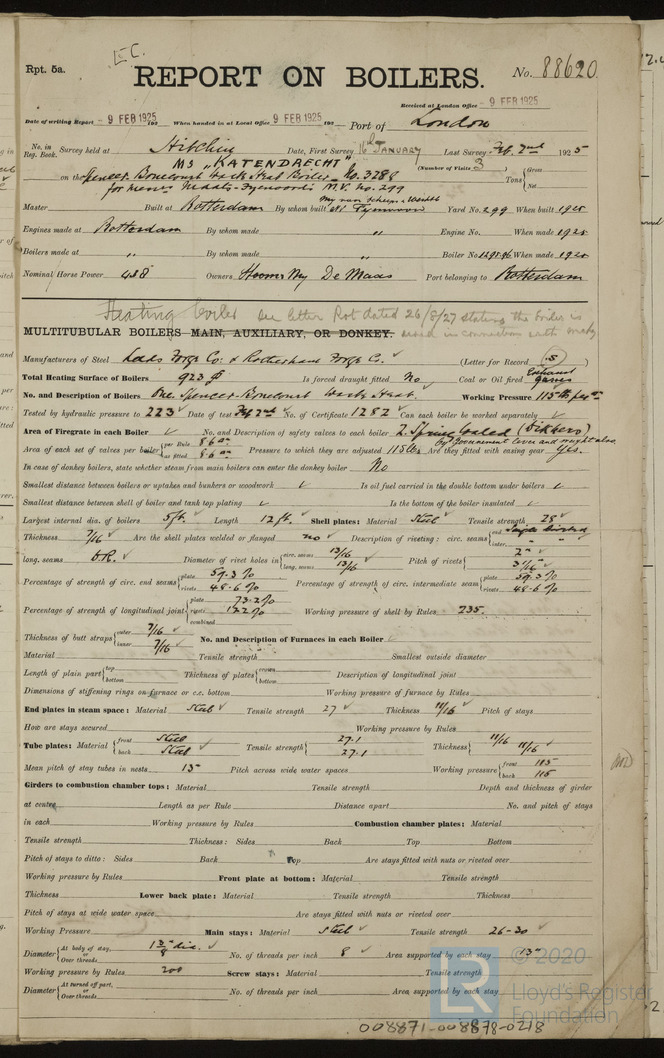 L.C.
Rpt. 5a.
REPORT ON BOILERS.
No. 88620
Received at London Office 9 FEB 1925
Date of writing Report 9 FEB 1925 192 When handed in at Local Office 9 FEB 1925 192 Port of London
No. in Reg. Book. Survey held at Hitchin Date, First Survey 16th JANUARY Last Survey Feb. 2nd 1925
MS "KATENDRECHT" (Number of Visits 3)
on the Spencer Bonecourt Waste Heat Boiler No. 3288 Tons { Gross Net
for M.V. No. 299
Master Built at Rotterdam By whom built Yard No. 299 When built 1925
Engines made at Rotterdam By whom made " Engine No. When made 1925
Boilers made at " By whom made " Boiler No. When made 1925
Nominal Horse Power 488 Owners De Maas Port belonging to Rotterdam
Heating boiler see letter Rot dated 26/8/27 stating the boiler is
MULTITUBULAR BOILERS MAIN, AUXILIARY, OR DONKEY. used in connection with
Manufacturers of Steel Leeds Forge Co. & Rotherham Forge Co. (Letter for Record S)
Total Heating Surface of Boilers 923 Is forced draught fitted No Coal or Oil fired Exhaust gases
No. and Description of Boilers One Spencer-Bonecourt Waste Heat Working Pressure 115
Tested by hydraulic pressure to 223 Date of test Feb 2nd No. of Certificate 1282 Can each boiler be worked separately
Area of Firegrate in each Boiler No. and Description of safety valves to each boiler 2 Spring Loaded (Dikkers)
by Government lever and weight also
Area of each set of valves per boiler { per Rule as fitted Pressure to which they are adjusted 115 lbs Are they fitted with easing gear Yes.
In case of donkey boilers, state whether steam from main boilers can enter the donkey boiler No
Smallest distance between boilers or uptakes and bunkers or woodwork Is oil fuel carried in the double bottom under boilers
Smallest distance between shell of boiler and tank top plating Is the bottom of the boiler insulated
Largest internal dia. of boilers 5 ft. Length 12 ft. Shell plates: Material Steel Tensile strength 28
Thickness 7/16 Are the shell plates welded or flanged no Description of riveting: circ. seams { end inter.
long. seams D.R. Diameter of rivet holes in { circ. seams 13/16 long. seams 13/16 Pitch of rivets { 2"
Percentage of strength of circ. end seams { plate 59.3 % rivets 48.6 % Percentage of strength of circ. intermediate seam { plate 59.3 % rivets 48.6 %
Percentage of strength of longitudinal joint { plate 73.2 % rivets 122 % combined Working pressure of shell by Rules 235
Thickness of butt straps { outer 7/16 inner 7/16 No. and Description of Furnaces in each Boiler
Material Tensile strength Smallest outside diameter
Length of plain part { top bottom Thickness of plates { crown bottom Description of longitudinal joint
Dimensions of stiffening rings on furnace or c.c. bottom Working pressure of furnace by Rules
End plates in steam space: Material Steel Tensile strength 27 Thickness 11/16 Pitch of stays
How are stays secured Working pressure by Rules
Tube plates: Material { front Steel back Steel Tensile strength { 27.1 27.1 Thickness { 11/16 11/16
Mean pitch of stay tubes in nests 15 Pitch across wide water spaces Working pressure { front 115 back 115
Girders to combustion chamber tops: Material Tensile strength Depth and thickness of girder
at centre Length as per Rule Distance apart No. and pitch of stays
in each Working pressure by Rules Combustion chamber plates: Material
Tensile strength Thickness: Sides Back Top Bottom
Pitch of stays to ditto: Sides Back Top Are stays fitted with nuts or riveted over
Working pressure by Rules Front plate at bottom: Material Tensile strength
Thickness Lower back plate: Material Tensile strength Thickness
Pitch of stays at wide water space Are stays fitted with nuts or riveted over
Working Pressure Main stays: Material Steel Tensile strength 26-30
Diameter { At body of stay, or Over threads No. of threads per inch 8 Area supported by each stay
Working pressure by Rules 200 Screw stays: Material Tensile strength
Diameter { At turned off part, or Over threads No. of threads per inch Area supported by each stay
LR
© 2020
Lloyd's Register
Foundation
008871-008878-0218